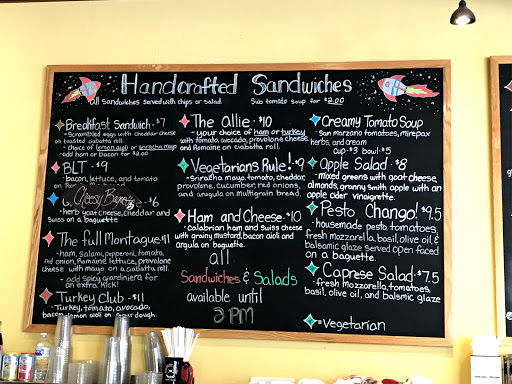 Handcrafted Sandwiches
all sandwiches served with chips or salad
Sub tomato soup for $2.00
Breakfast Sandwich - $7
- Scrambled eggs with cheddar cheese
on toasted ciabatta roll.
- choice of lemon aioli or sriracha mayo
- add ham or bacon for $2.00
BLT - $9
bacon, lettuce, and tomato
Cheesy
$6
herb goat cheese, cheddar and
Swiss on a baguette
The full Montague $11
- ham, salami, pepperoni, tomato,
red onion, Romaine lettuce, provolone
cheese with mayo on a ciabatta roll.
- add spicy giardiniera for
an extra kick!
Turkey Club - $11
- Turkey, tomato, avocado,
bacon, lemon aioli on sourdough.
The Allie - $10
- your choice of ham or turkey
with tomato, avocado, provolone cheese
and Romaine on ciabatta roll.
Vegetarians Rule! $9
- Sriracha mayo, tomato, cheddar,
provolone, cucumber, red onions,
and arugula on multigrain bread.
Ham and Cheese - $10
- Calabrian ham and swiss cheese
with grainy mustard, bacon aioli and
arugula on baguette.
all
Sandwiches & Salads
available until
3 PM
Creamy Tomato Soup
- San marzano tomatoes, mirepax
herbs, and cream
cup - $3 bowl - $5
Apple Salad - $8
- mixed greens with goat cheese,
almonds, granny smith apple with an
apple cider vinaigrette.
Pesto Chango! $9.5
- housemade pesto, tomatoes,
fresh mozzarella, basil, olive oil, &
balsamic glaze served open faced
on a baguette.
Caprese Salad - $7.5
- fresh mozzarella, tomatoes,
basil, olive oil, and balsmic glaze
= Vegetarian